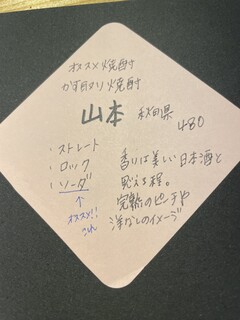 オススメ焼酎
かすトリ焼酎
山本 秋田県
480
・ストレート
・ロック
・ソーダ
↑
オススメ!!
香りは美しい日本酒と
思える程。
完熟のピーチや
洋なしのイメージ